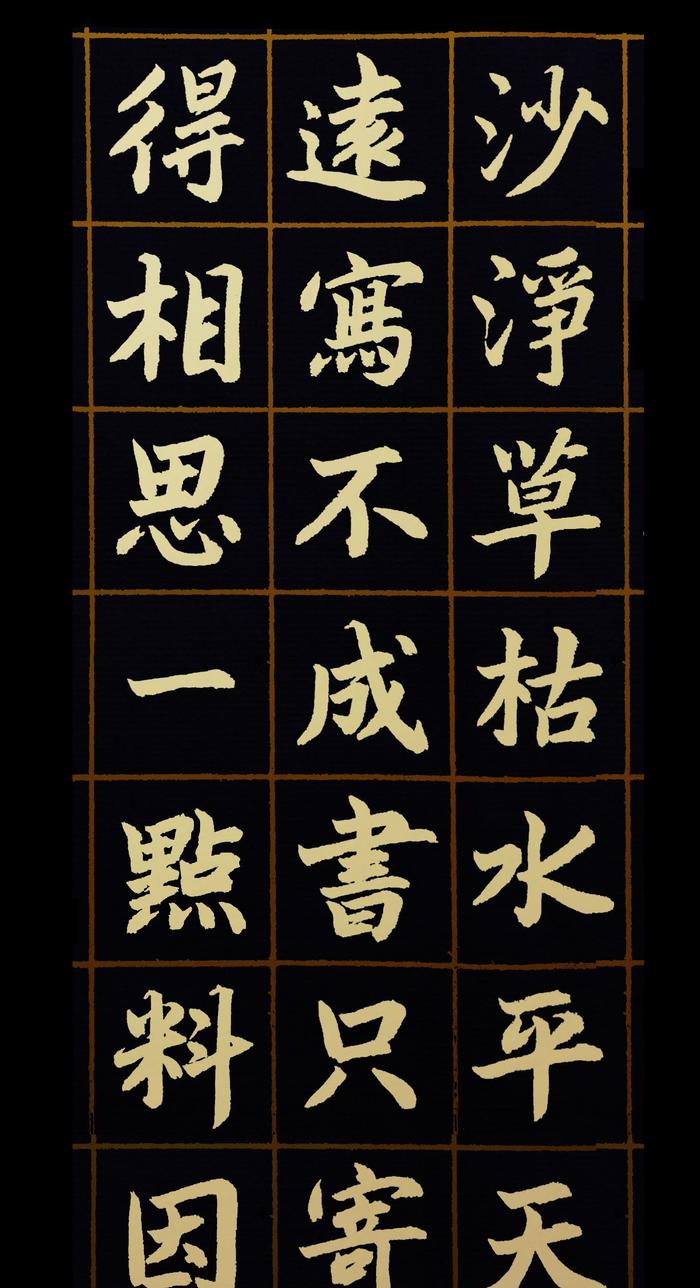 沙淨草枯水平天
遠寫不成書只寄
得相思一點料因